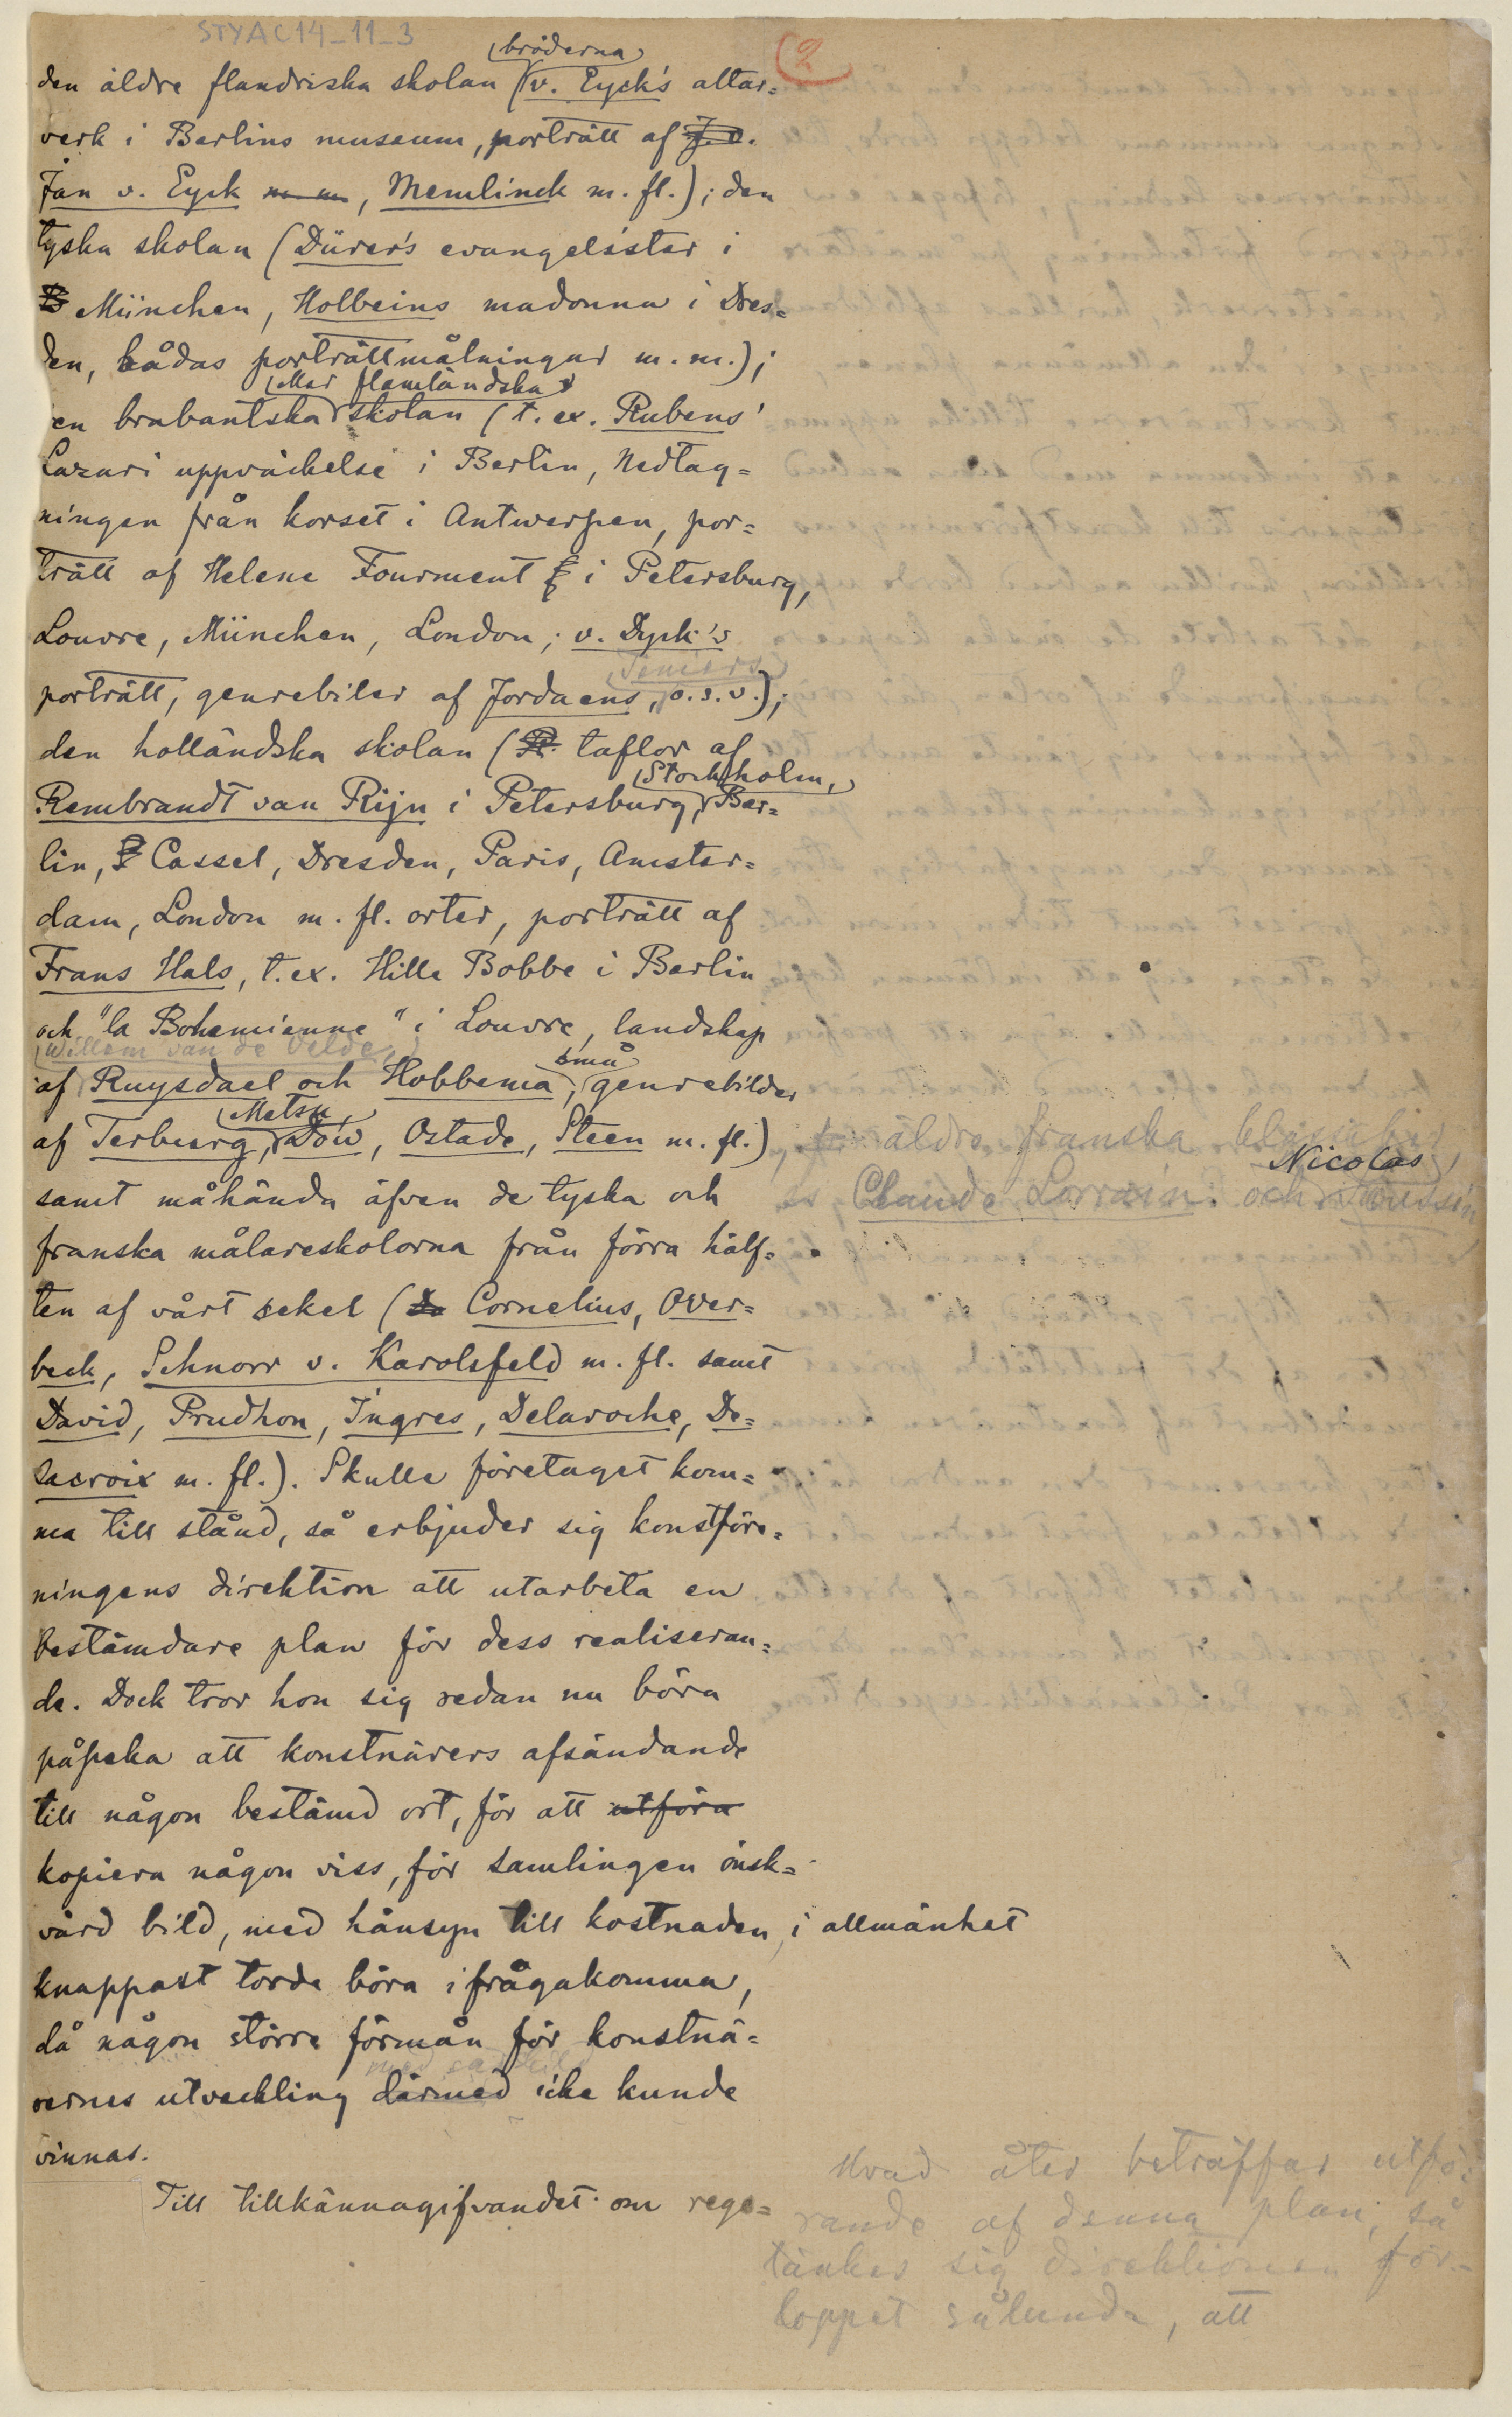 STYAC14_11_3
2
bröderna
den äldre flandriska skolan (v. Eyck's altar=
verk i Berlins museum, porträtt af J. v.
Jan v. Eyck m m, Memlinck m. fl.); den
tyska skolan (Dürer's evangelister i
B München, Holbeins madonna i Dres=
den, bådas porträttmålningar m. m.);
eller flamländska
en brabantska skolan (t. ex. Rubens'
Lazari uppväckelse i Berlin, Nedtag=
ningen från korset i Antwerpen, por=
trätt af Helene Fourment i Petersburg,
Louvre, München, London; v. Dyck's
Teniers
porträtt, genrebilder af Jordaens, o. s. v.);
den holländska skolan (R. taflor af
Stockholm,
Rembrandt van Rijn i Petersburg, Ber=
lin, Cassel, Dresden, Paris, Amster=
dam, London m. fl. orter, porträtt af
Frans Hals, t. ex. Hille Bobbe i Berlin
och "la Bohemienne" i Louvre, landskap
Willem van de Velde,
af Ruysdael och Hobbema, små genrebilder
Metsu,
af Terburg, Dow, Ostade, Steen m. fl.), äldre franska klassiker
Nicolas
samt måhända äfven de tyska och
Claude Lorrain och Poussin
franska målareskolorna från förra hälf=
ten af vårt sekel (Da Cornelius, Over=
beck, Schnorr v. Karolsfeld m. fl. samt
David, Prudhon, Ingres, Delaroche, De=
lacroix m. fl.). Skulle företaget kom=
ma till stånd, så erbjuder sig konstföre=
ningens direktion att utarbeta en
bestämdare plan för dess realiseran=
de. Dock tror hon sig redan nu böra
påpeka att konstnärers afsändande
till någon bestämd ort, för att utföra
kopiera någon viss, för samlingen önsk=
värd bild, med hänsyn till kostnaden, i allmänhet
knappast torde böra ifrågakomma,
då någon större förmån för konstnä=
rernes utveckling därmed icke kunde
vinnas.
Till tillkännagifvandet om rege=
Hvad åter beträffar utfö=
rande af denna plan, så
tänker sig direktionen för=
loppet sålunda, att